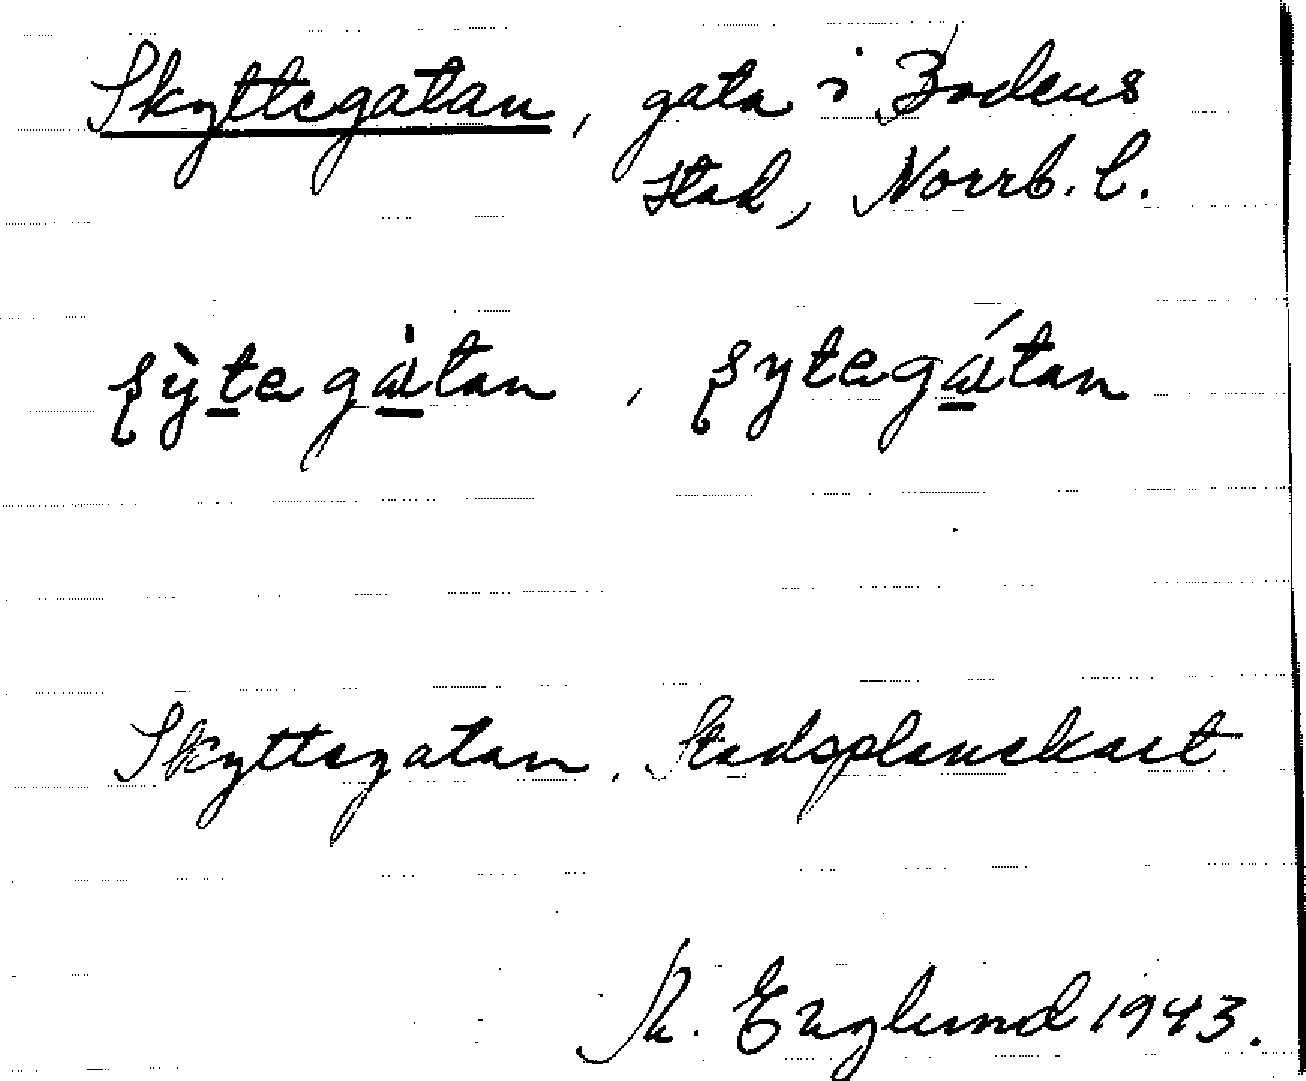 Skyttegatan, gata i Bodens
stad, Norrb. l.
ʂỳte gàtan, ʂytegátan
Skyttegatan. Stadsplanekart
Englund 1943.